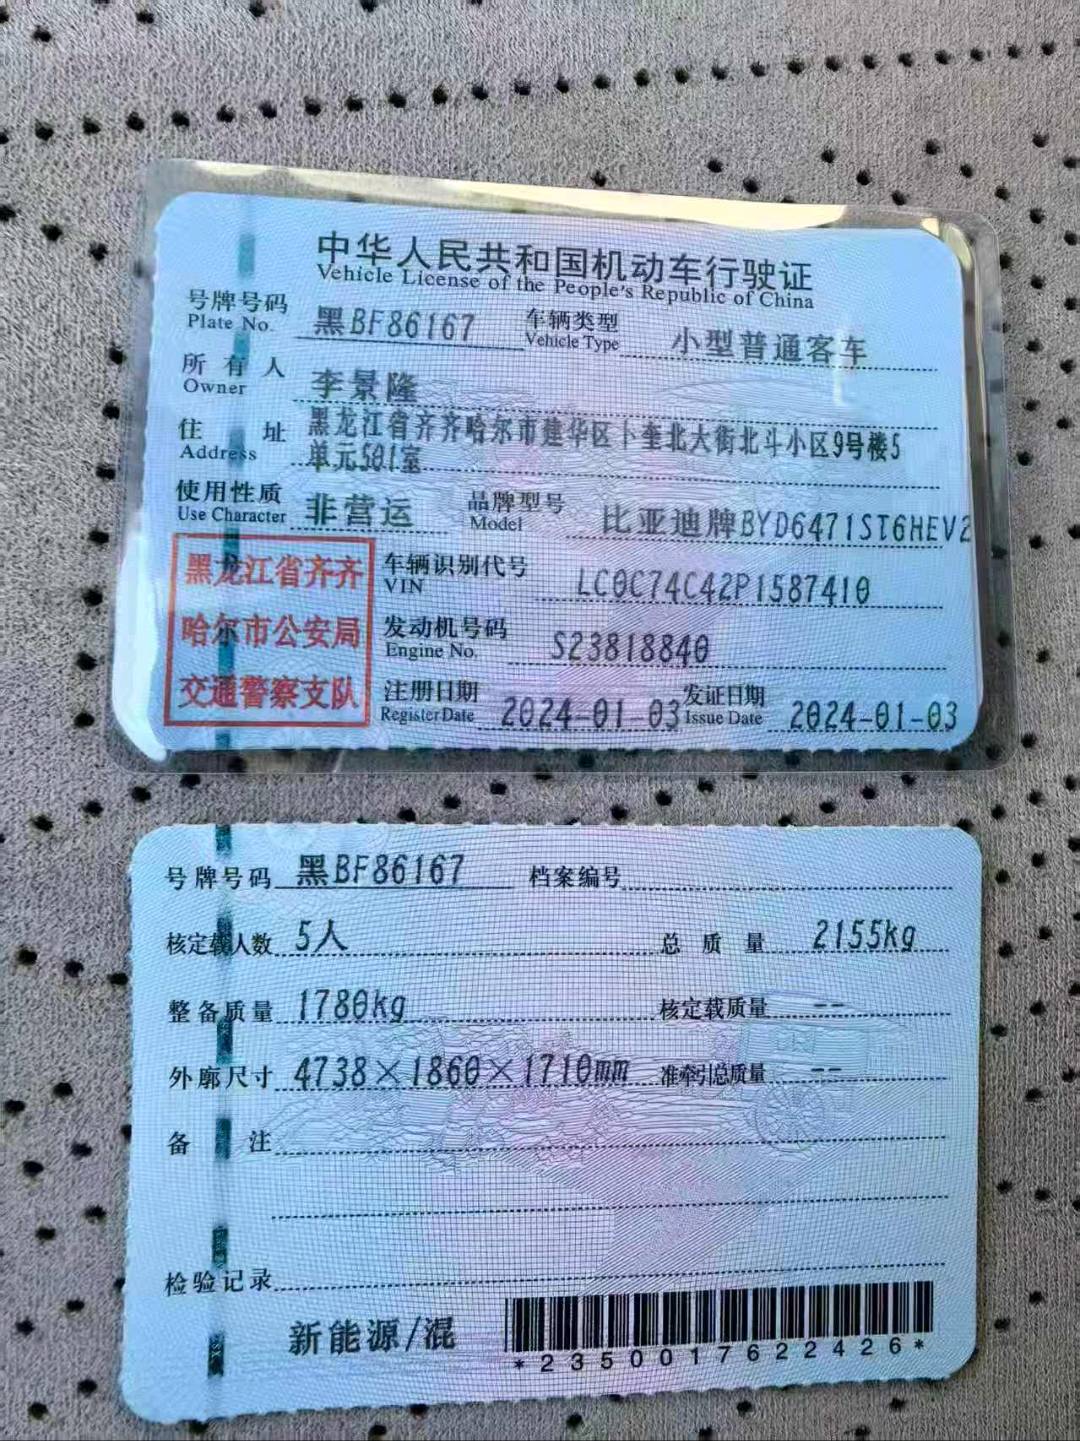 中华人民共和国机动车行驶证
Vehicle License of the People's Republic of China
号牌号码 黑BF86167 车辆类型 小型普通客车
Plate No. Vehicle Type
所有人 李景隆
Owner
住址 黑龙江省齐齐哈尔市建华区卜奎北大街北斗小区9号楼5
Address 单元501室
使用性质 非营运 品牌型号 比亚迪牌BYD6471ST6HEV2
Use Character Model
黑龙江省齐齐
哈尔市公安局
交通警察支队
车辆识别代号 LC0C74C42P1587410
VIN
发动机号码 S23818840
Engine No.
注册日期 2024-01-03 发证日期 2024-01-03
Register Date Issue Date
号牌号码 黑BF86167 档案编号
核定载人数 5人 总质量 2155kg
整备质量 1780kg 核定载质量 --
外廓尺寸 4738×1860×1710mm 准牵引总质量 --
备注
检验记录
新能源/混
*2350017622426*